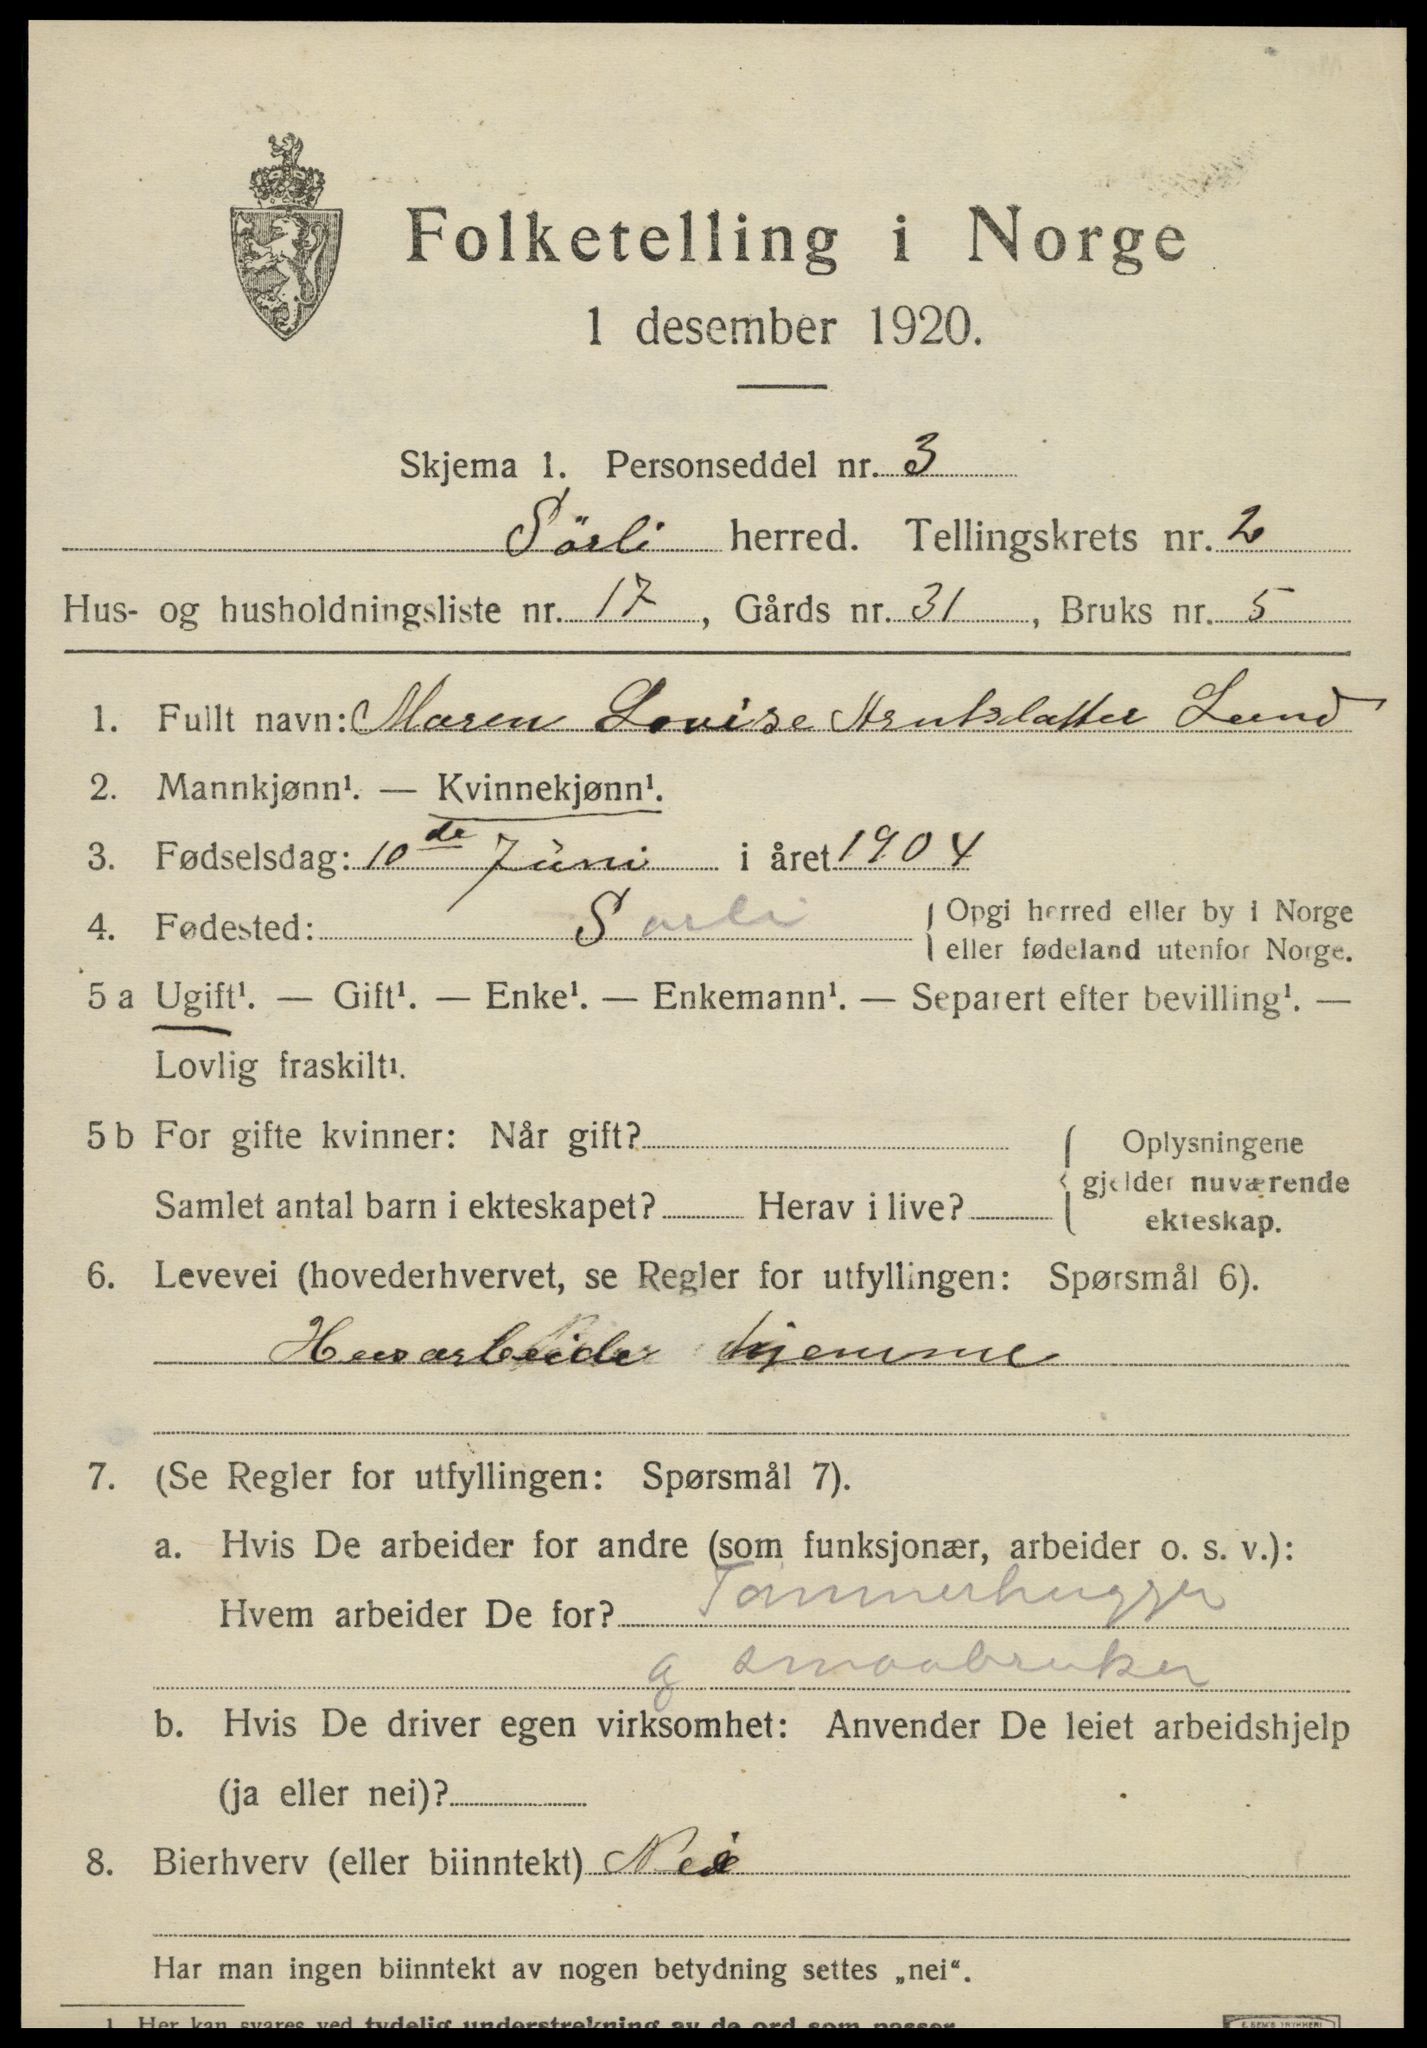 Folketelling i Norge
1 desember 1920.
Skjema 1. Personseddel nr. 3
Sörli herred. Tellingskrets nr. 2
Hus- og husholdningsliste nr. 17, Gårds nr. 31, Bruks nr. 5
1. Fullt navn: Maren Lovise Arntsdatter Lund
2. Mannkjønn¹. — Kvinnekjønn¹.
3. Fødselsdag: 10de Juni i året 1904
4. Fødested: Sørli { Opgi herred eller by i Norge
eller fødeland utenfor Norge.
5 a Ugift¹. — Gift¹. — Enke¹. — Enkemann¹. — Separert efter bevilling¹. —
Lovlig fraskilt¹.
5 b For gifte kvinner: Når gift? { Oplysningene
gjelder nuværende
Samlet antal barn i ekteskapet? Herav i live?
ekteskap.
6. Levevei (hovederhvervet, se Regler for utfyllingen: Spørsmål 6).
Husarbeide hjemme
7. (Se Regler for utfyllingen: Spørsmål 7).
a. Hvis De arbeider for andre (som funksjonær, arbeider o. s. v.):
Hvem arbeider De for? Tømmerhugger
g smaabruker
b. Hvis De driver egen virksomhet: Anvender De leiet arbeidshjelp
(ja eller nei)?
8. Bierhverv (eller biinntekt) Nei
Har man ingen biinntekt av nogen betydning settes „nei“.
1 Her kan svares ved tydelig understrekning av de ord som passer.